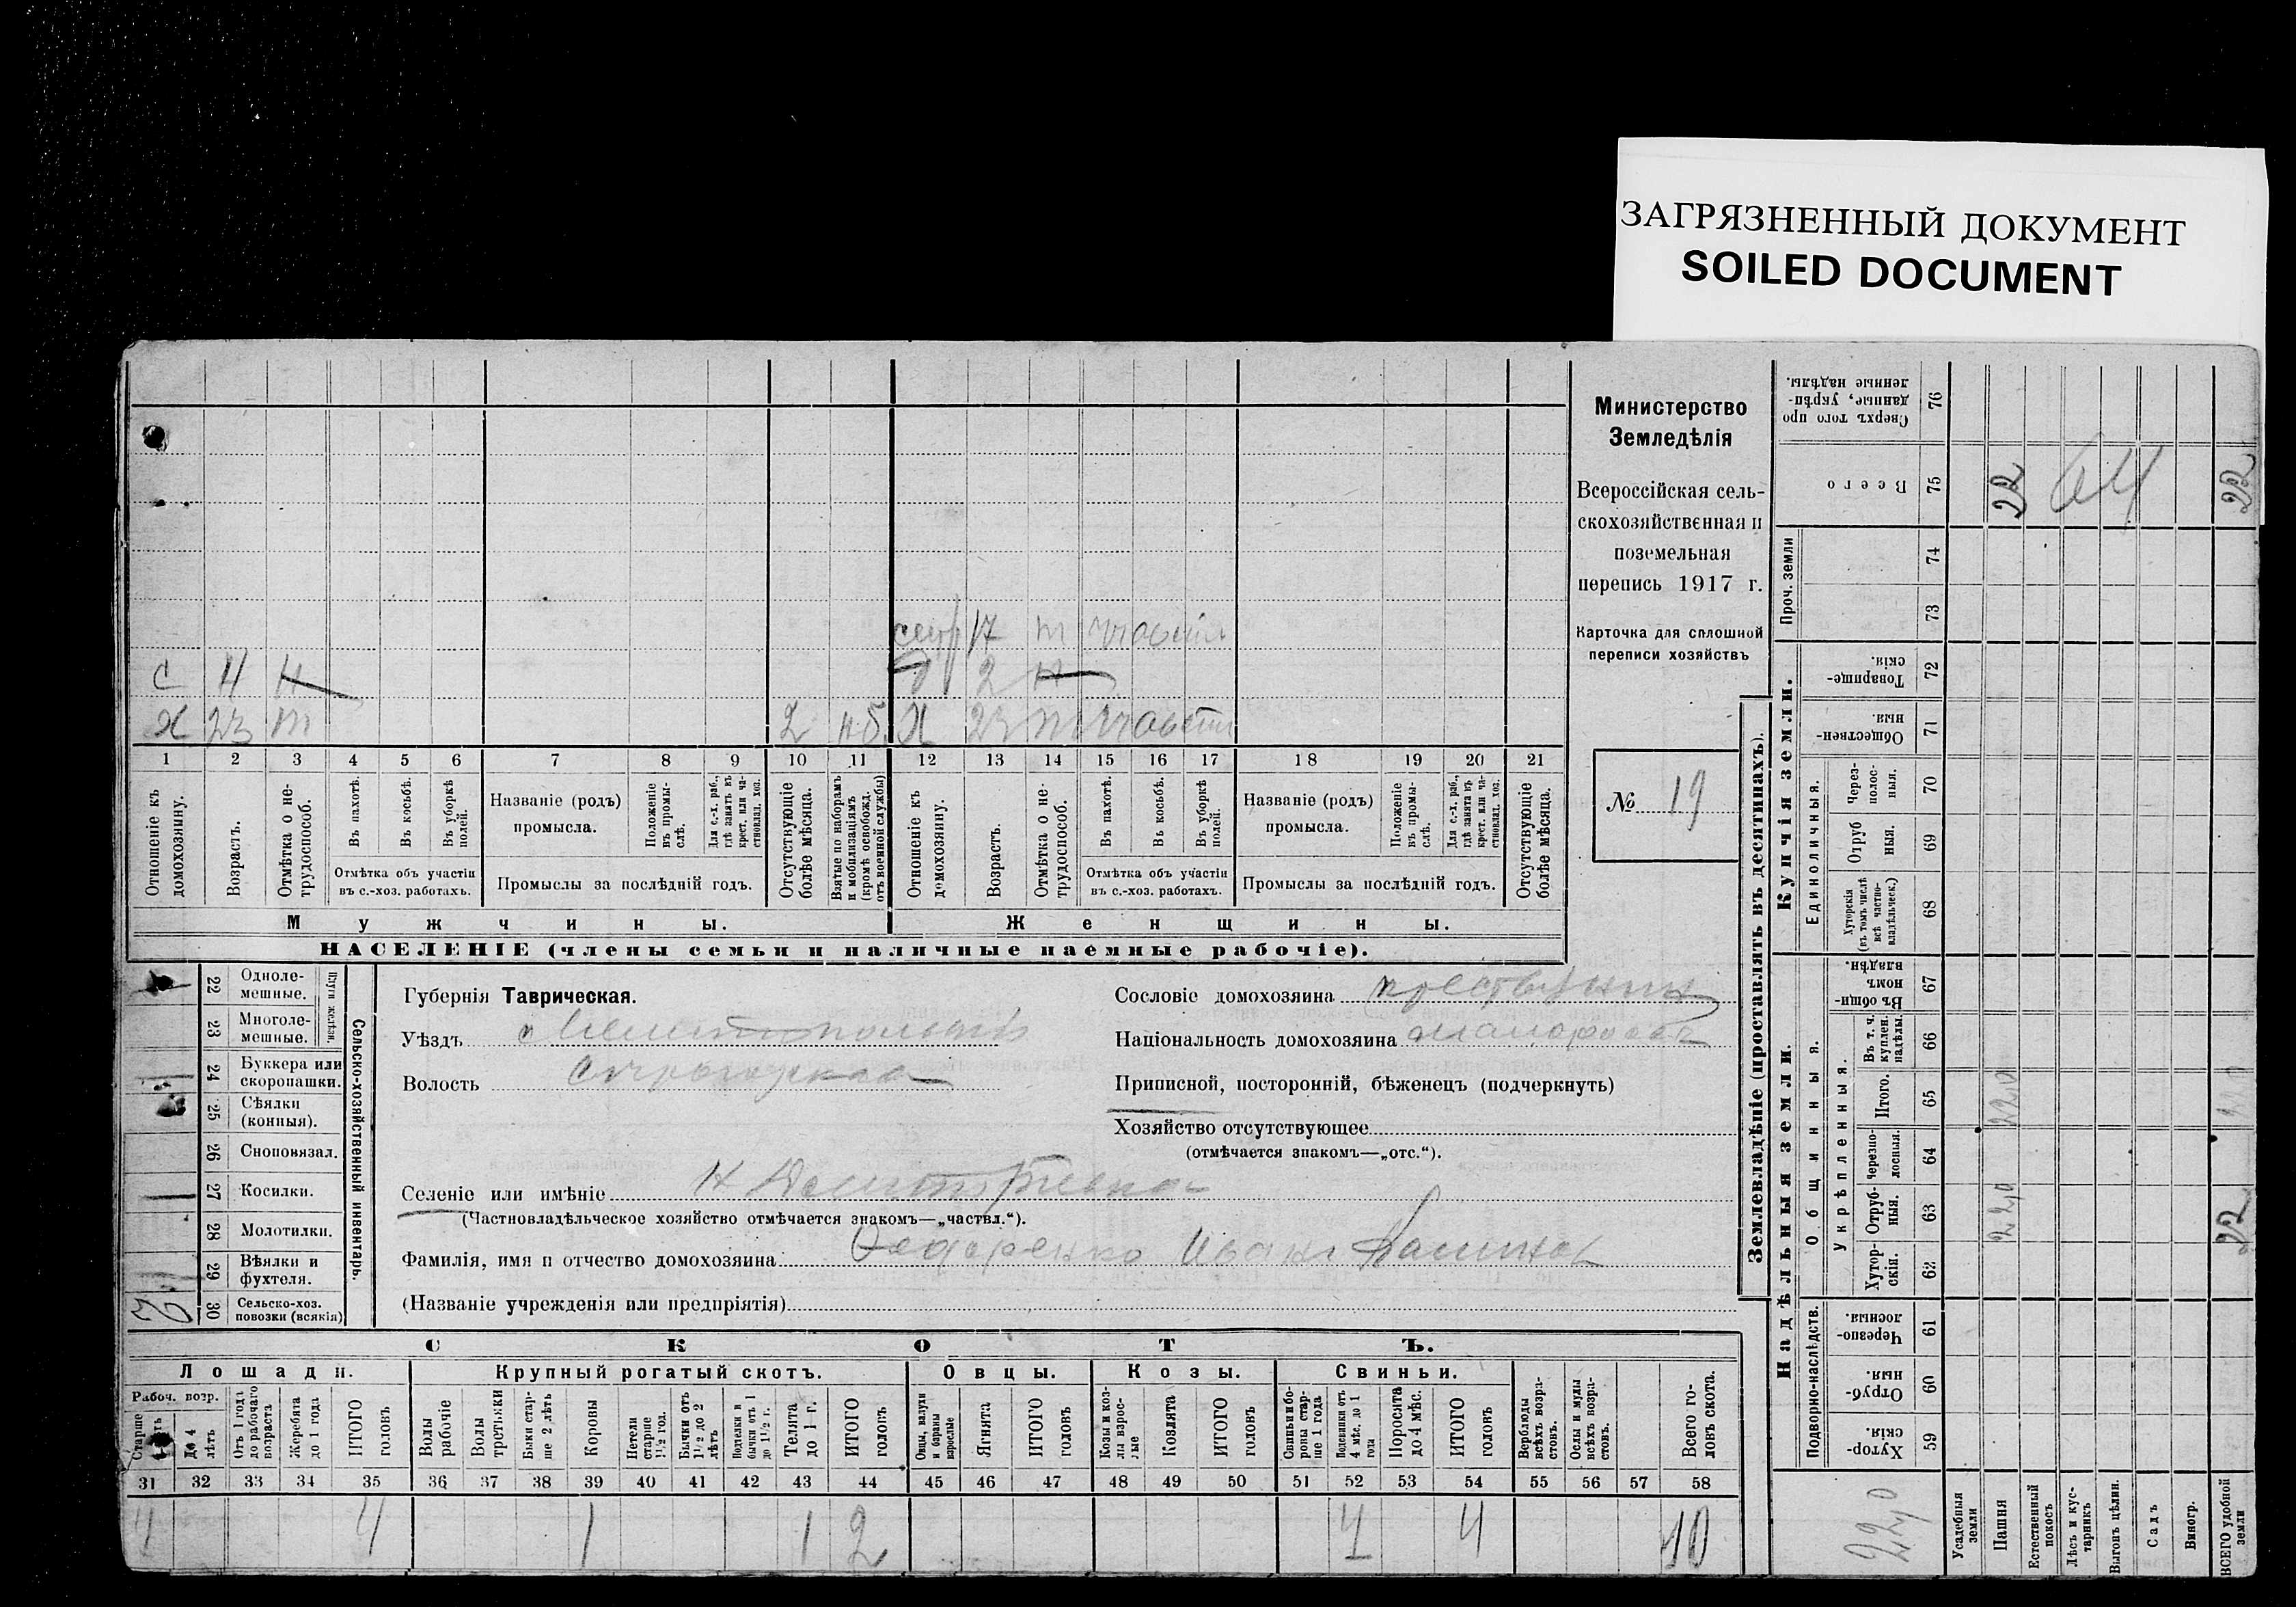 ЗАГРЯЗНЕННЫЙ ДОКУМЕНТ
SOILED DOCUMENT
Министерство
Земледѣлія
Всероссійская сель-
скохозяйственная и
поземельная
перепись 1917 г.
Карточка для сплошной
переписи хозяйствъ
№ 19
17 т участв
С 4 н 2 н
Х 23 т 2 нб Х 23 т участв
1 2 3 4 5 6 7 8 9 10 11 12 13 14 15 16 17 18 19 20 21
Отношеніе къ домохозяину.
Возрастъ.
Отмѣтка о не-трудоспособ.
Въ пахотѣ.
Въ косьбѣ.
Въ уборкѣ полей.
Отмѣтка объ участіи
въ с.-хоз. работахъ.
Названіе (родъ)
промысла.
Положеніе въ промы-слѣ.
Для с.-х. раб., гдѣ занятъ въ крест. или ча-стновлад. хоз.
Промыслы за послѣдній годъ.
Отсутствующіе болѣе мѣсяца.
Взятые по наборамъ и мобилизаціямъ (кромѣ освобожд. отъ военной службы)
Отношеніе къ домохозяину.
Возрастъ.
Отмѣтка о не-трудоспособ.
Въ пахотѣ.
Въ косьбѣ.
Въ уборкѣ полей.
Отмѣтка объ участіи
въ с.-хоз. работахъ.
Названіе (родъ)
промысла.
Положеніе въ промы-слѣ.
Для с.-х. раб., гдѣ занята въ крест. или ча-стновлад. хоз.
Промыслы за послѣдній годъ.
Отсутствующіе болѣе мѣсяца.
Мужчины. Женщины.
НАСЕЛЕНІЕ (члены семьи и наличные наемные рабочіе).
Сельско-хозяйственный инвентарь.
Плуги желѣзн.
22 Одноле-мешные.
23 Многоле-мешные.
24 Буккера или скоропашки.
25 Сѣялки (конныя).
26 Сноповязал.
27 Косилки.
28 Молотилки.
29 Вѣялки и фухтеля.
30 Сельско-хоз. повозки (всякія)
Губернія Таврическая.
Уѣздъ Мелитопольскій
Волость
Сословіе домохозяина
Національность домохозяина
Приписной, посторонній, бѣженецъ (подчеркнуть)
Хозяйство отсутствующее
(отмѣчается знакомъ—„отс.“).
Селеніе или имѣніе Н Дмитріевка
(Частновладѣльческое хозяйство отмѣчается знакомъ—„частвл.“).
Фамилія, имя и отчество домохозяина Федоренко Иванъ
(Названіе учрежденія или предпріятія)
СКОТЪ.
Лошади. Крупный рогатый скотъ. Овцы. Козы. Свиньи.
Рабоч. возр.
Старше
До 4 лѣтъ
Отъ 1 года до рабочаго возраста
Жеребята до 1 года
ИТОГО головъ
Волы рабочіе
Волы третьяки
Быки стар-ше 2 лѣтъ
Коровы
Нетели старше 1½ год.
Бычки отъ 1½ до 2 лѣтъ
Подтелки и бычки отъ 1 до 1½ г.
Телята до 1 г.
ИТОГО головъ
Овцы, валухи и бараны взрослые
Ягнята
ИТОГО головъ
Козы и коз-лы взрос-лые
Козлята
ИТОГО головъ
Свиньи и бо-ровы стар-ше 1 года
Подсвинки отъ 4 мѣс. до 1 года
Поросята до 4 мѣс.
ИТОГО головъ
Верблюды всѣхъ возра-стовъ.
Ослы и мулы всѣхъ возра-стовъ.
Всего го-ловъ скота.
31 32 33 34 35 36 37 38 39 40 41 42 43 44 45 46 47 48 49 50 51 52 53 54 55 56 57 58
4 4 1 1 2 4 4 10
Землевладѣніе (проставлять въ десятинахъ).
Надѣльныя земли.
Купчія земли.
Проч. земли
Подворно-наслѣдств.
Общинныя.
Укрѣпленныя.
Единоличныя.
Сверхъ того про-данные, укрѣп-ленные надѣлы. 76
Всего 75 22 22
74
73
Товарище-скія. 72
Обществен-ныя. 71
Через-полос-ныя. 70
Отруб-ныя. 69
Хуторскія (въ томъ числѣ всѣ частно-владѣльческ.) 68
Въ общин-номъ владѣн. 67
Въ т. ч. куплен. надѣлы. 66
Итого. 65 22,0
Черезпо-лосныя. 64
Отруб-ныя. 63 22,0 22
Хутор-скія. 62
Черезпо-лосныя 61
Отруб-ныя. 60
Хутор-скія. 59
22,0
Усадебныя земли
Пашня
Естественный покосъ
Лѣсъ и кус-тарникъ
Выгонъ цѣлин.
Садъ
Виногр.
ВСЕГО удобной земли